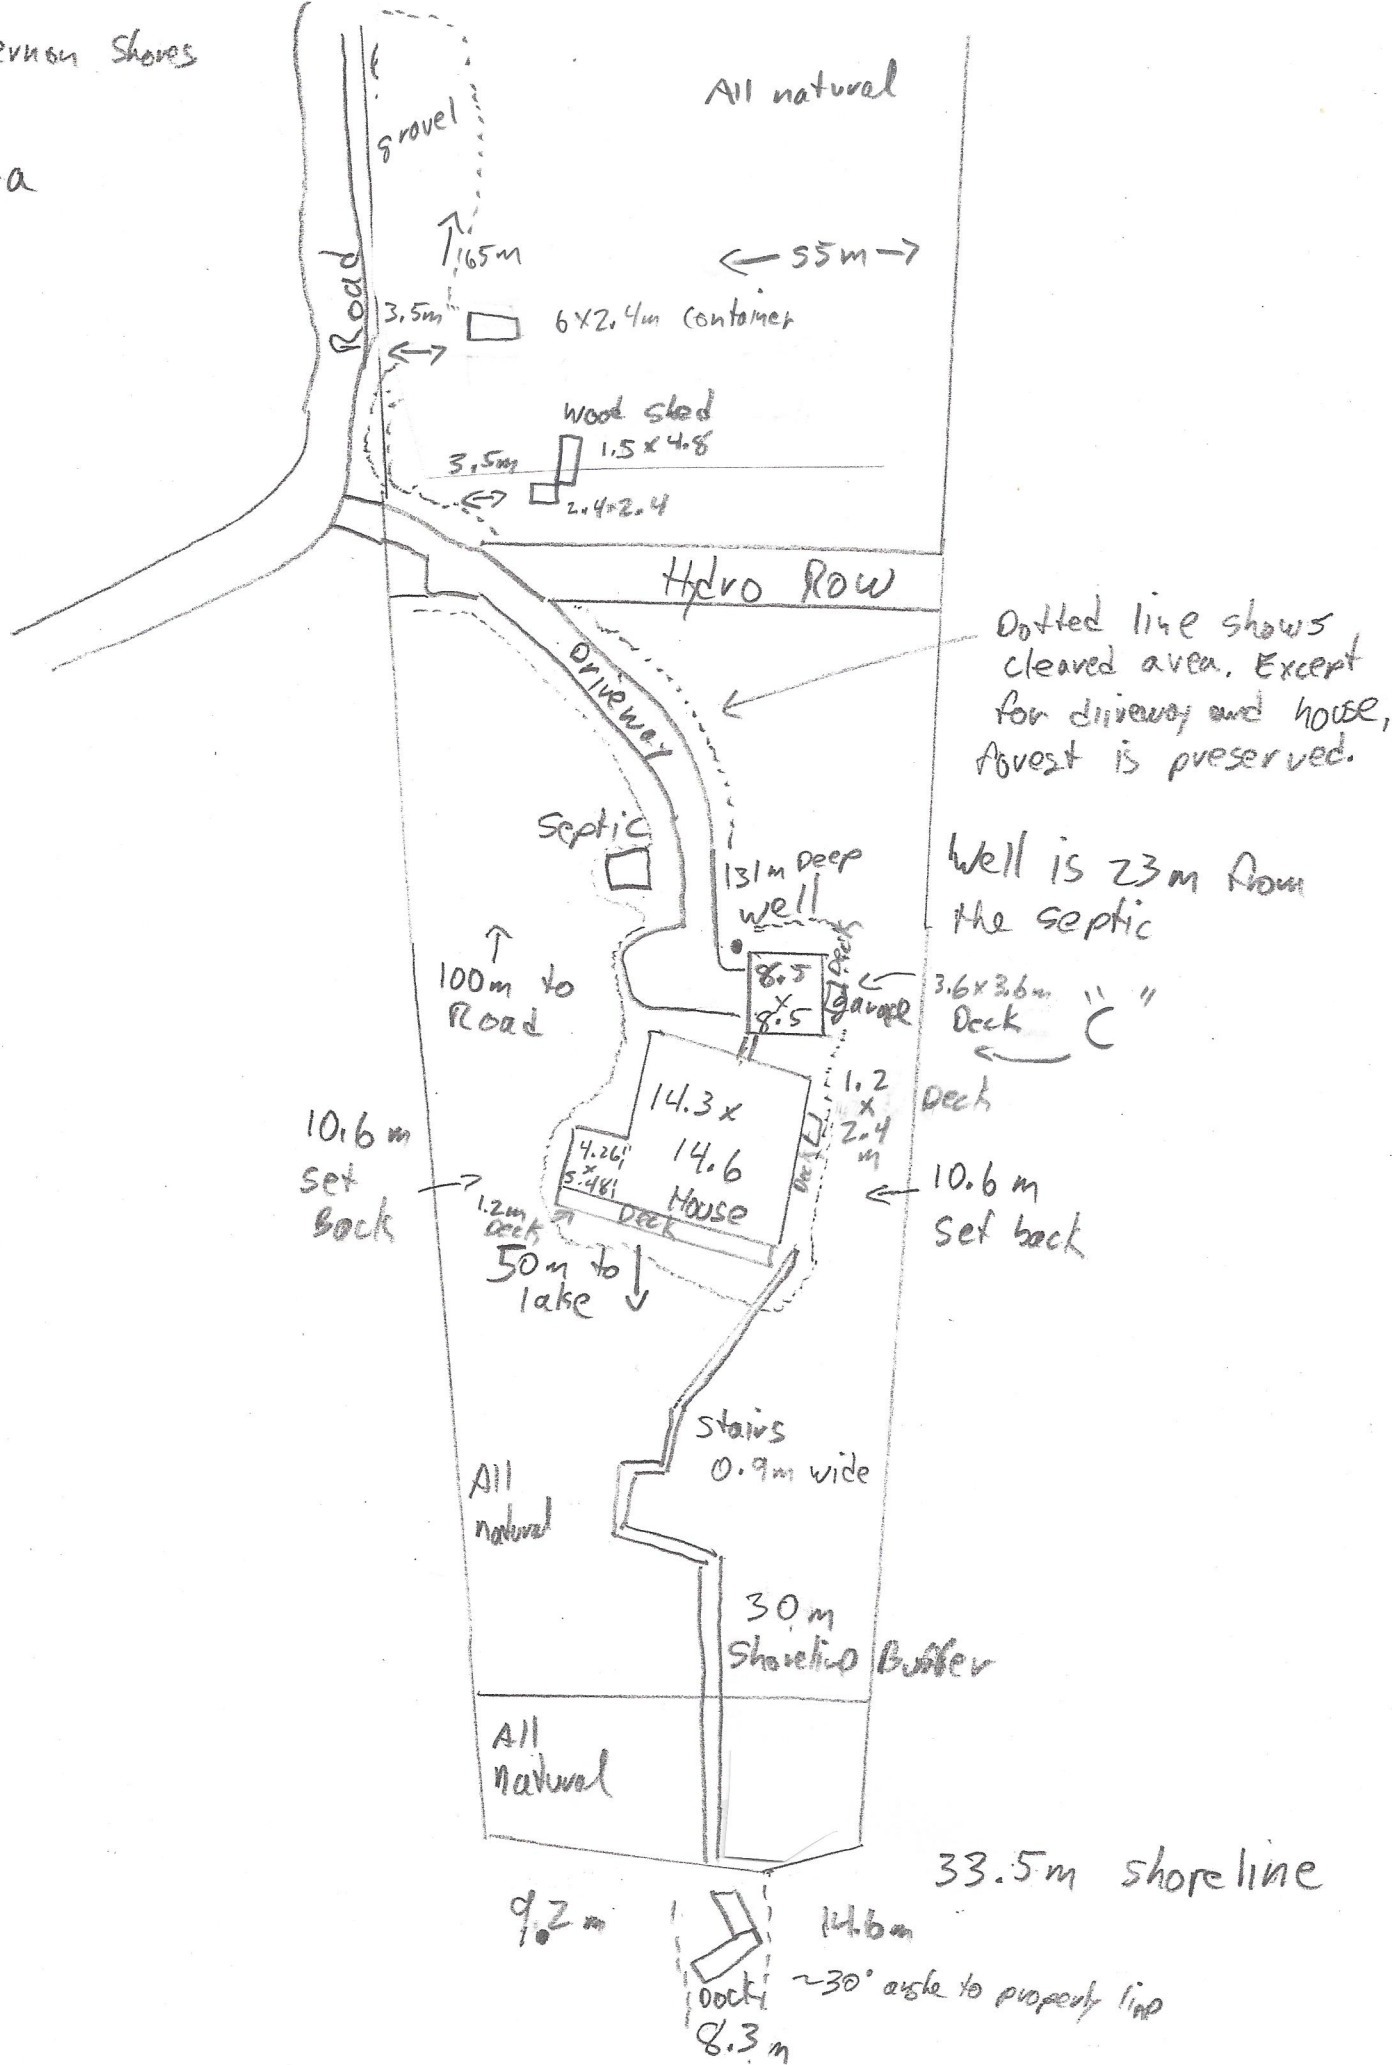 ernon Shores
a
All natural
gravel
165m
← 55m →
Road
3.5m
6x2.4m container
wood shed
1.5 x 4.8
3.5m
2.4x2.4
Hdro Row
Driveway
Dotted line shows
cleared area. Except
for driveway and house,
forest is preserved.
Septic
131m Deep
well
Well is 23m from
the septic
Deck
8.5
x
8.5
garage
3.6x3.6m
Deck
"C"
100m to
Road
1.2
x
2.4
m
Deck
Deck
14.3 x
14.6
House
4.26
x
5.48
10.6 m
set
Back
10.6 m
set back
1.2m
Deck
Deck
50m to
lake
Stairs
0.9m wide
All
natural
30m
Shoreline Buffer
All
natural
33.5m shoreline
9.2 m
14.6m
Dock
~30° angle to property line
8.3 m